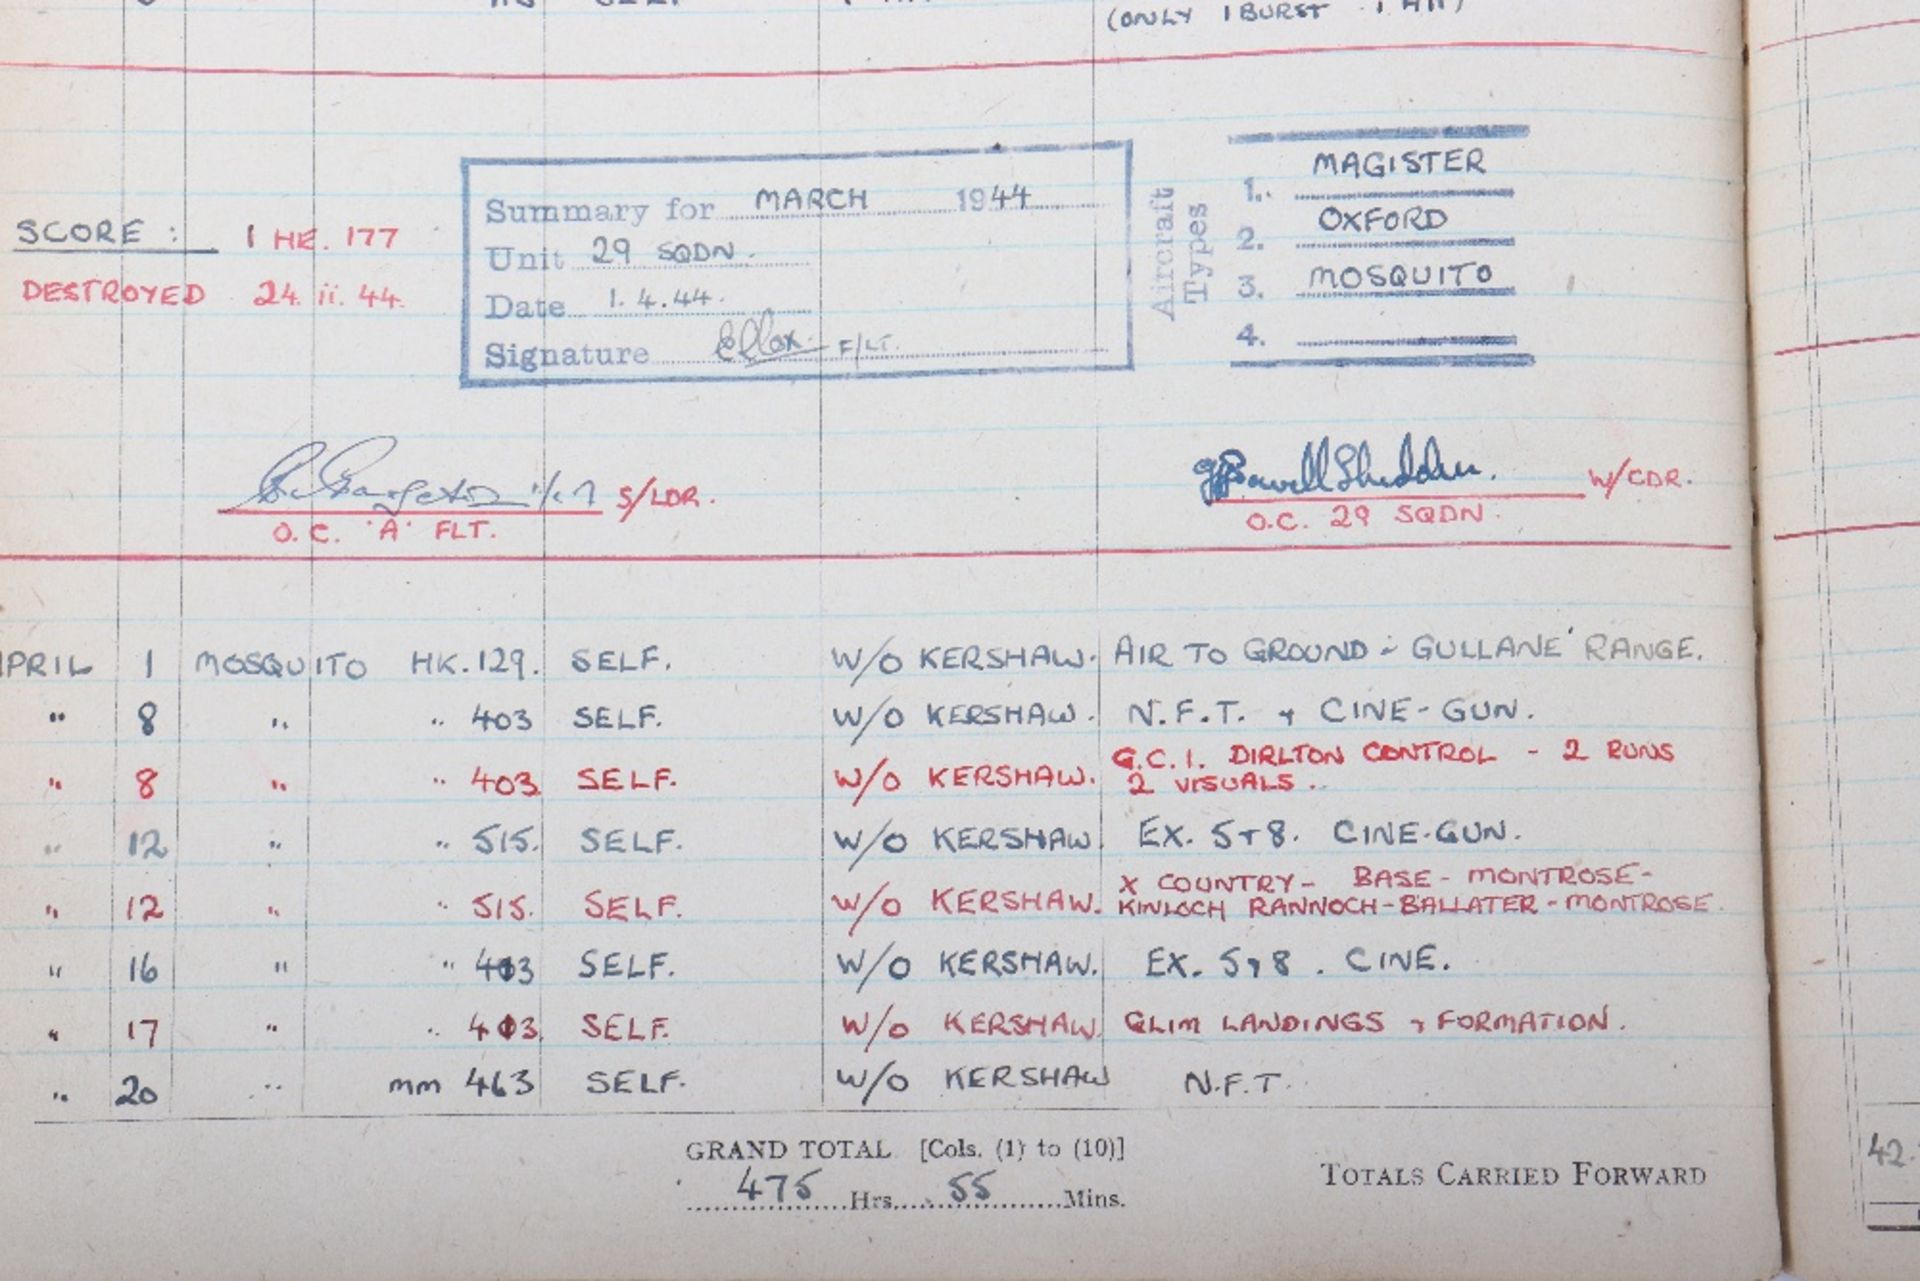 (ONLY 1 BURST
SCORE : 1 HE. 177
DESTROYED 24. ii. 44.
Summary for MARCH 1944
Unit 29 SQDN.
Date 1.4.44.
Signature F/LT.
Aircraft Types
1. MAGISTER
2. OXFORD
3. MOSQUITO
4.
S/LDR.
O.C. 'A' FLT.
W/CDR.
O.C. 29 SQDN.
APRIL 1 MOSQUITO HK.129. SELF. W/O KERSHAW. AIR TO GROUND - GULLANE RANGE.
" 8 " " 403 SELF. W/O KERSHAW. N.F.T. + CINE-GUN.
" 8 " " 403 SELF. W/O KERSHAW. G.C.I. DIRLTON CONTROL - 2 RUNS
2 VISUALS.
" 12 " " 515. SELF. W/O KERSHAW EX. 5+8. CINE-GUN.
" 12 " " 515. SELF. W/O KERSHAW. X COUNTRY - BASE - MONTROSE -
KINLOCH RANNOCH - BALLATER - MONTROSE.
" 16 " " 413 SELF. W/O KERSHAW. EX. 5+8. CINE.
" 17 " " 413. SELF. W/O KERSHAW. GLIM LANDINGS + FORMATION.
" 20 " mm 463 SELF. W/O KERSHAW N.F.T.
GRAND TOTAL [Cols. (1) to (10)]
475 Hrs. 55 Mins.
TOTALS CARRIED FORWARD
42.